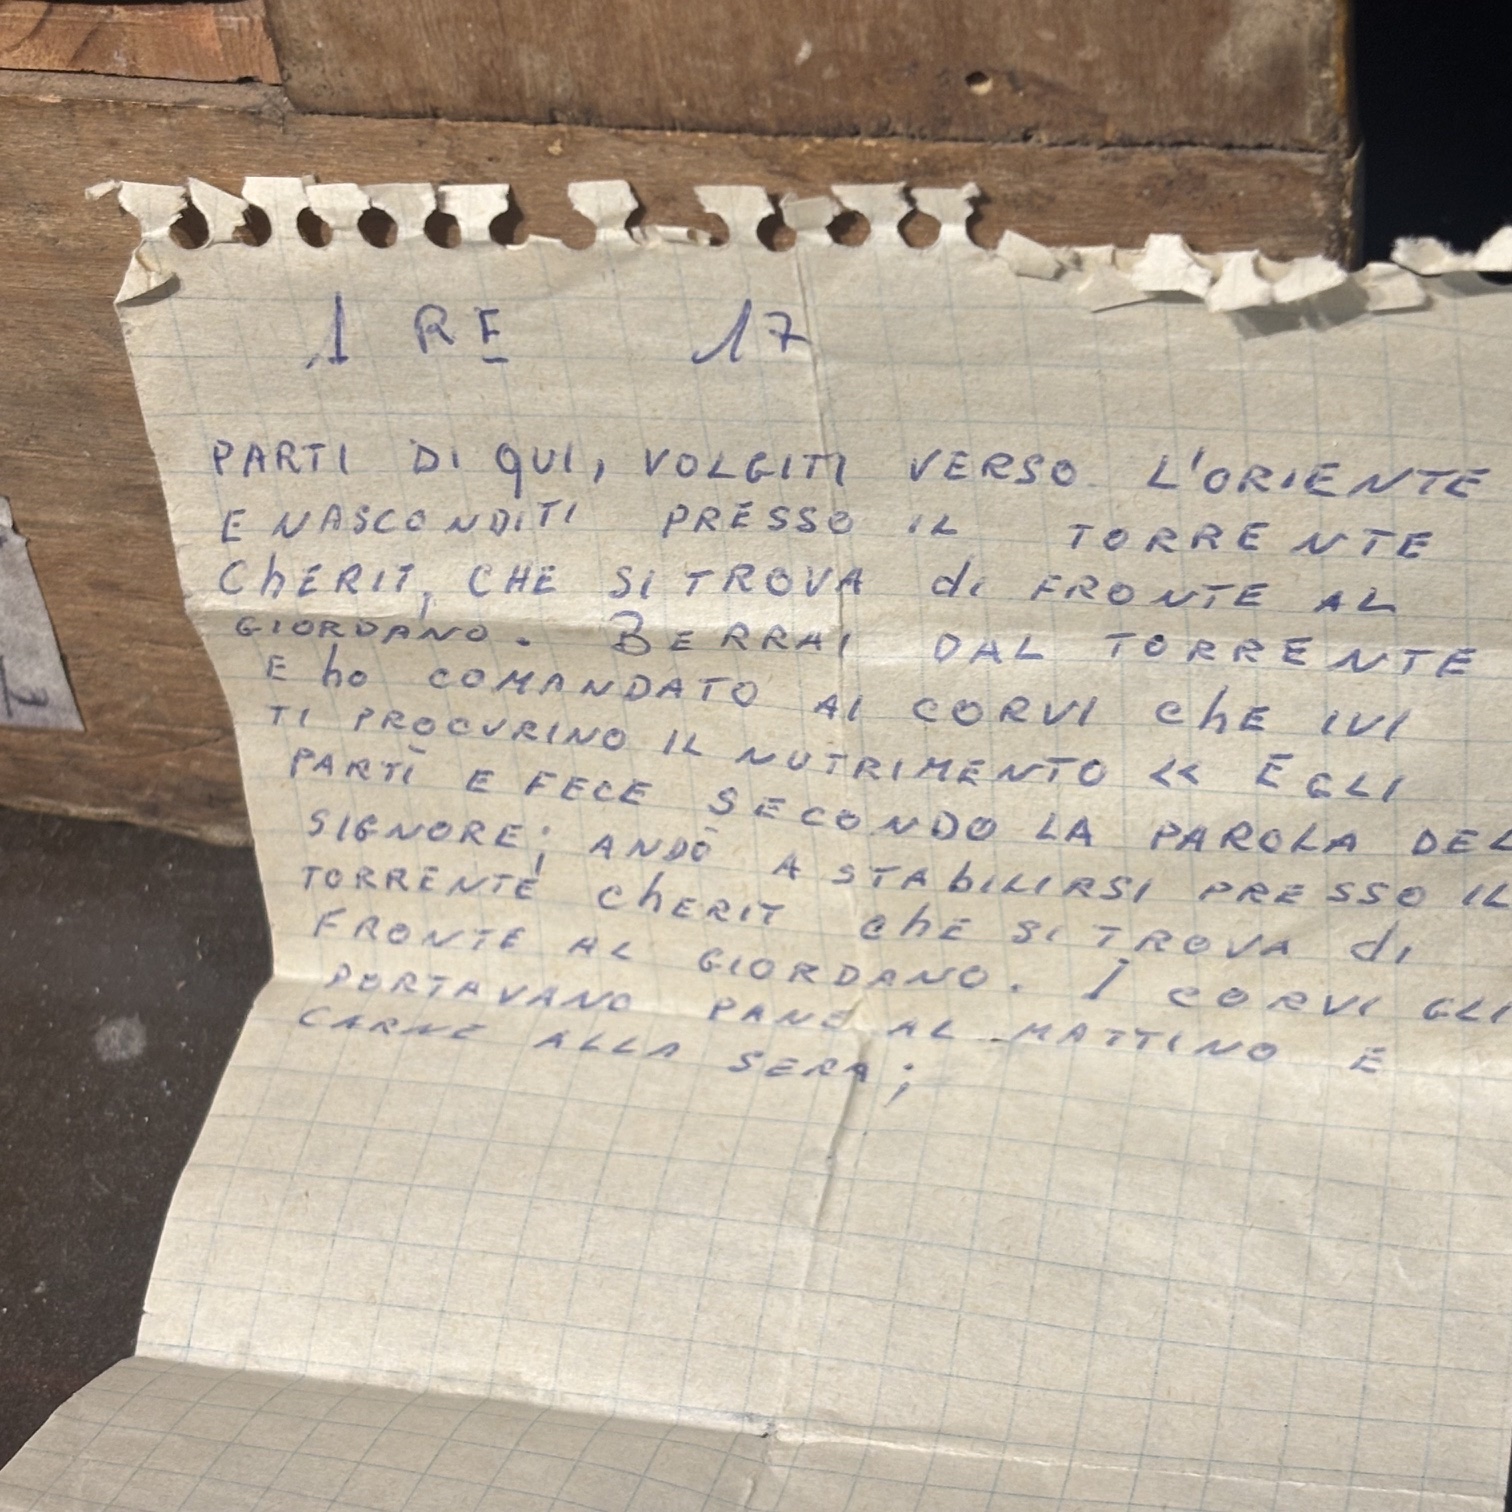 1 RE 17
PARTI DI QUI, VOLGITI VERSO L'ORIENTE
E NASCONDITI PRESSO IL TORRENTE
ChERIT, CHE SI TROVA di FRONTE AL
GIORDANO. BERRAI DAL TORRENTE
E ho COMANDATO AI CORVI ChE IVI
TI PROCURINO IL NUTRIMENTO << EGLI
PARTÌ E FECE SECONDO LA PAROLA DEL
SIGNORE; ANDÒ A STABILIRSI PRESSO IL
TORRENTE ChERIT ChE SI TROVA di
FRONTE AL GIORDANO. I CORVI GLI
PORTAVANO PANE AL MATTINO E
CARNE ALLA SERA;